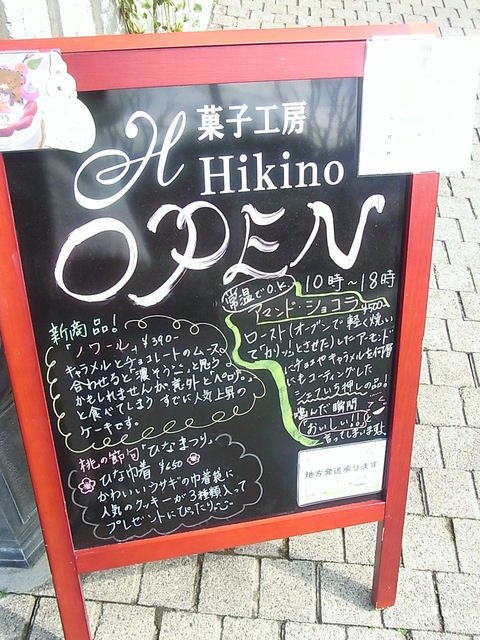 H 菓子工房
Hikino
OPEN
10時〜18時
常温でO.K.
アマンド・ショコラ
ロースト(オーブンで軽く焼い
て
とさせた)したアーモンド
にチョコやキャラメルを何層
にもコーティングした
シェフいち押しの品!
噛んだ瞬間
「おいしい!!」
言ってしまいますよ
新商品!
「ノワール」 ¥390-
キャラメルとチョコレートのムース。
合わせると「濃そう…」と思う
かもしれませんが、意外と「ペロリ」。
と食べてしまう すでに人気上昇の
ケーキです。
桃の節句「ひなまつり」
ひな巾着 ¥650
かわいいウサギの巾着袋に
人気のクッキーが3種類入って
プレゼントにぴったり
地方発送承ります